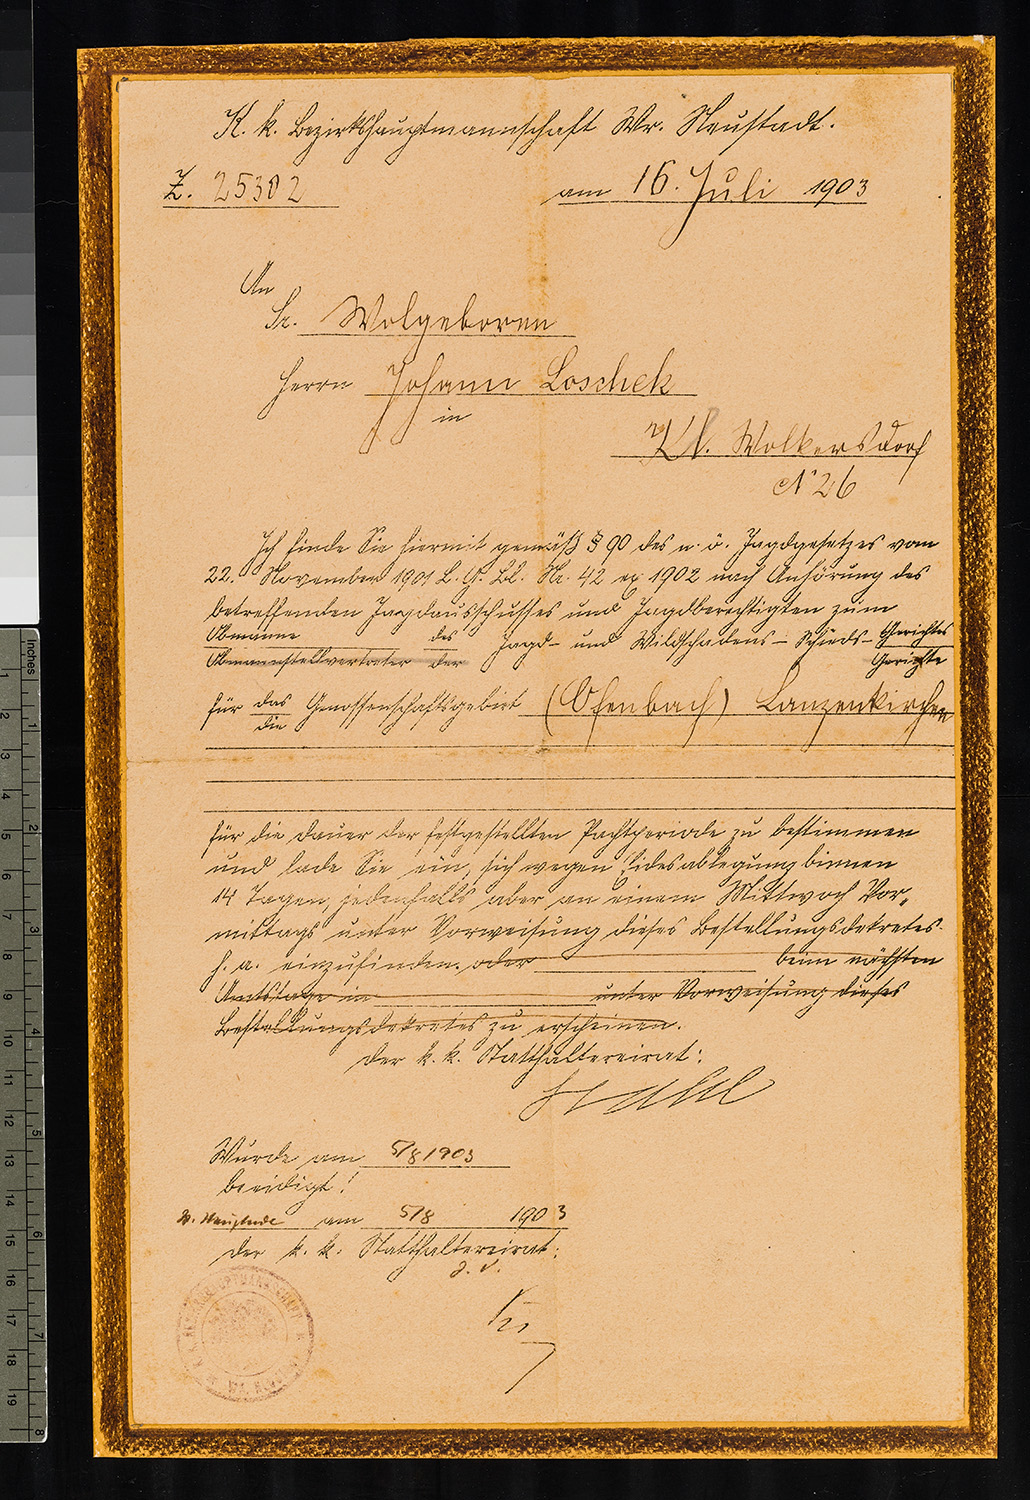 K. k. Bezirkshauptmannschaft Wr. Neustadt.
Z. 25302 am 16. Juli 1903
An
Sr. Wolgeboren
Herrn Johann Loschek
in
Kl. Wolkersdorf
N 26
Ich finde Sie hiermit gemäß § 90 des n. ö. Jagdgesetzes vom
22. November 1901 L. G. Bl. Nr. 42 ex 1902 nach Anhörung des
betreffenden Jagdausschusses und Jagdberechtigten zum
Obmanne des Jagd- und Wildschadens- Schieds- Gerichtes
Obmannstellvertreter der Gerichte
für das Genossenschaftsgebiet (Ofenbach) Lanzenkirchen
die
für die Dauer der festgestellten Pachtperiode zu bestimmen
und lade Sie ein, sich wegen Eidesablegung binnen
14 Tagen, jedenfalls aber an einem Mittwoch Vor-
mittags unter Vorweisung dieses Bestellungsdekretes
h. a. einzufinden. oder beim nächsten
Amtstage in unter Vorweisung dieses
Bestellungsdekretes zu erscheinen.
Der k. k. Statthaltereirat:
Wurde am 5/8 1903
beeidigt!
W. Neustadt am 5/8 1903
Der k. k. Statthaltereirat: